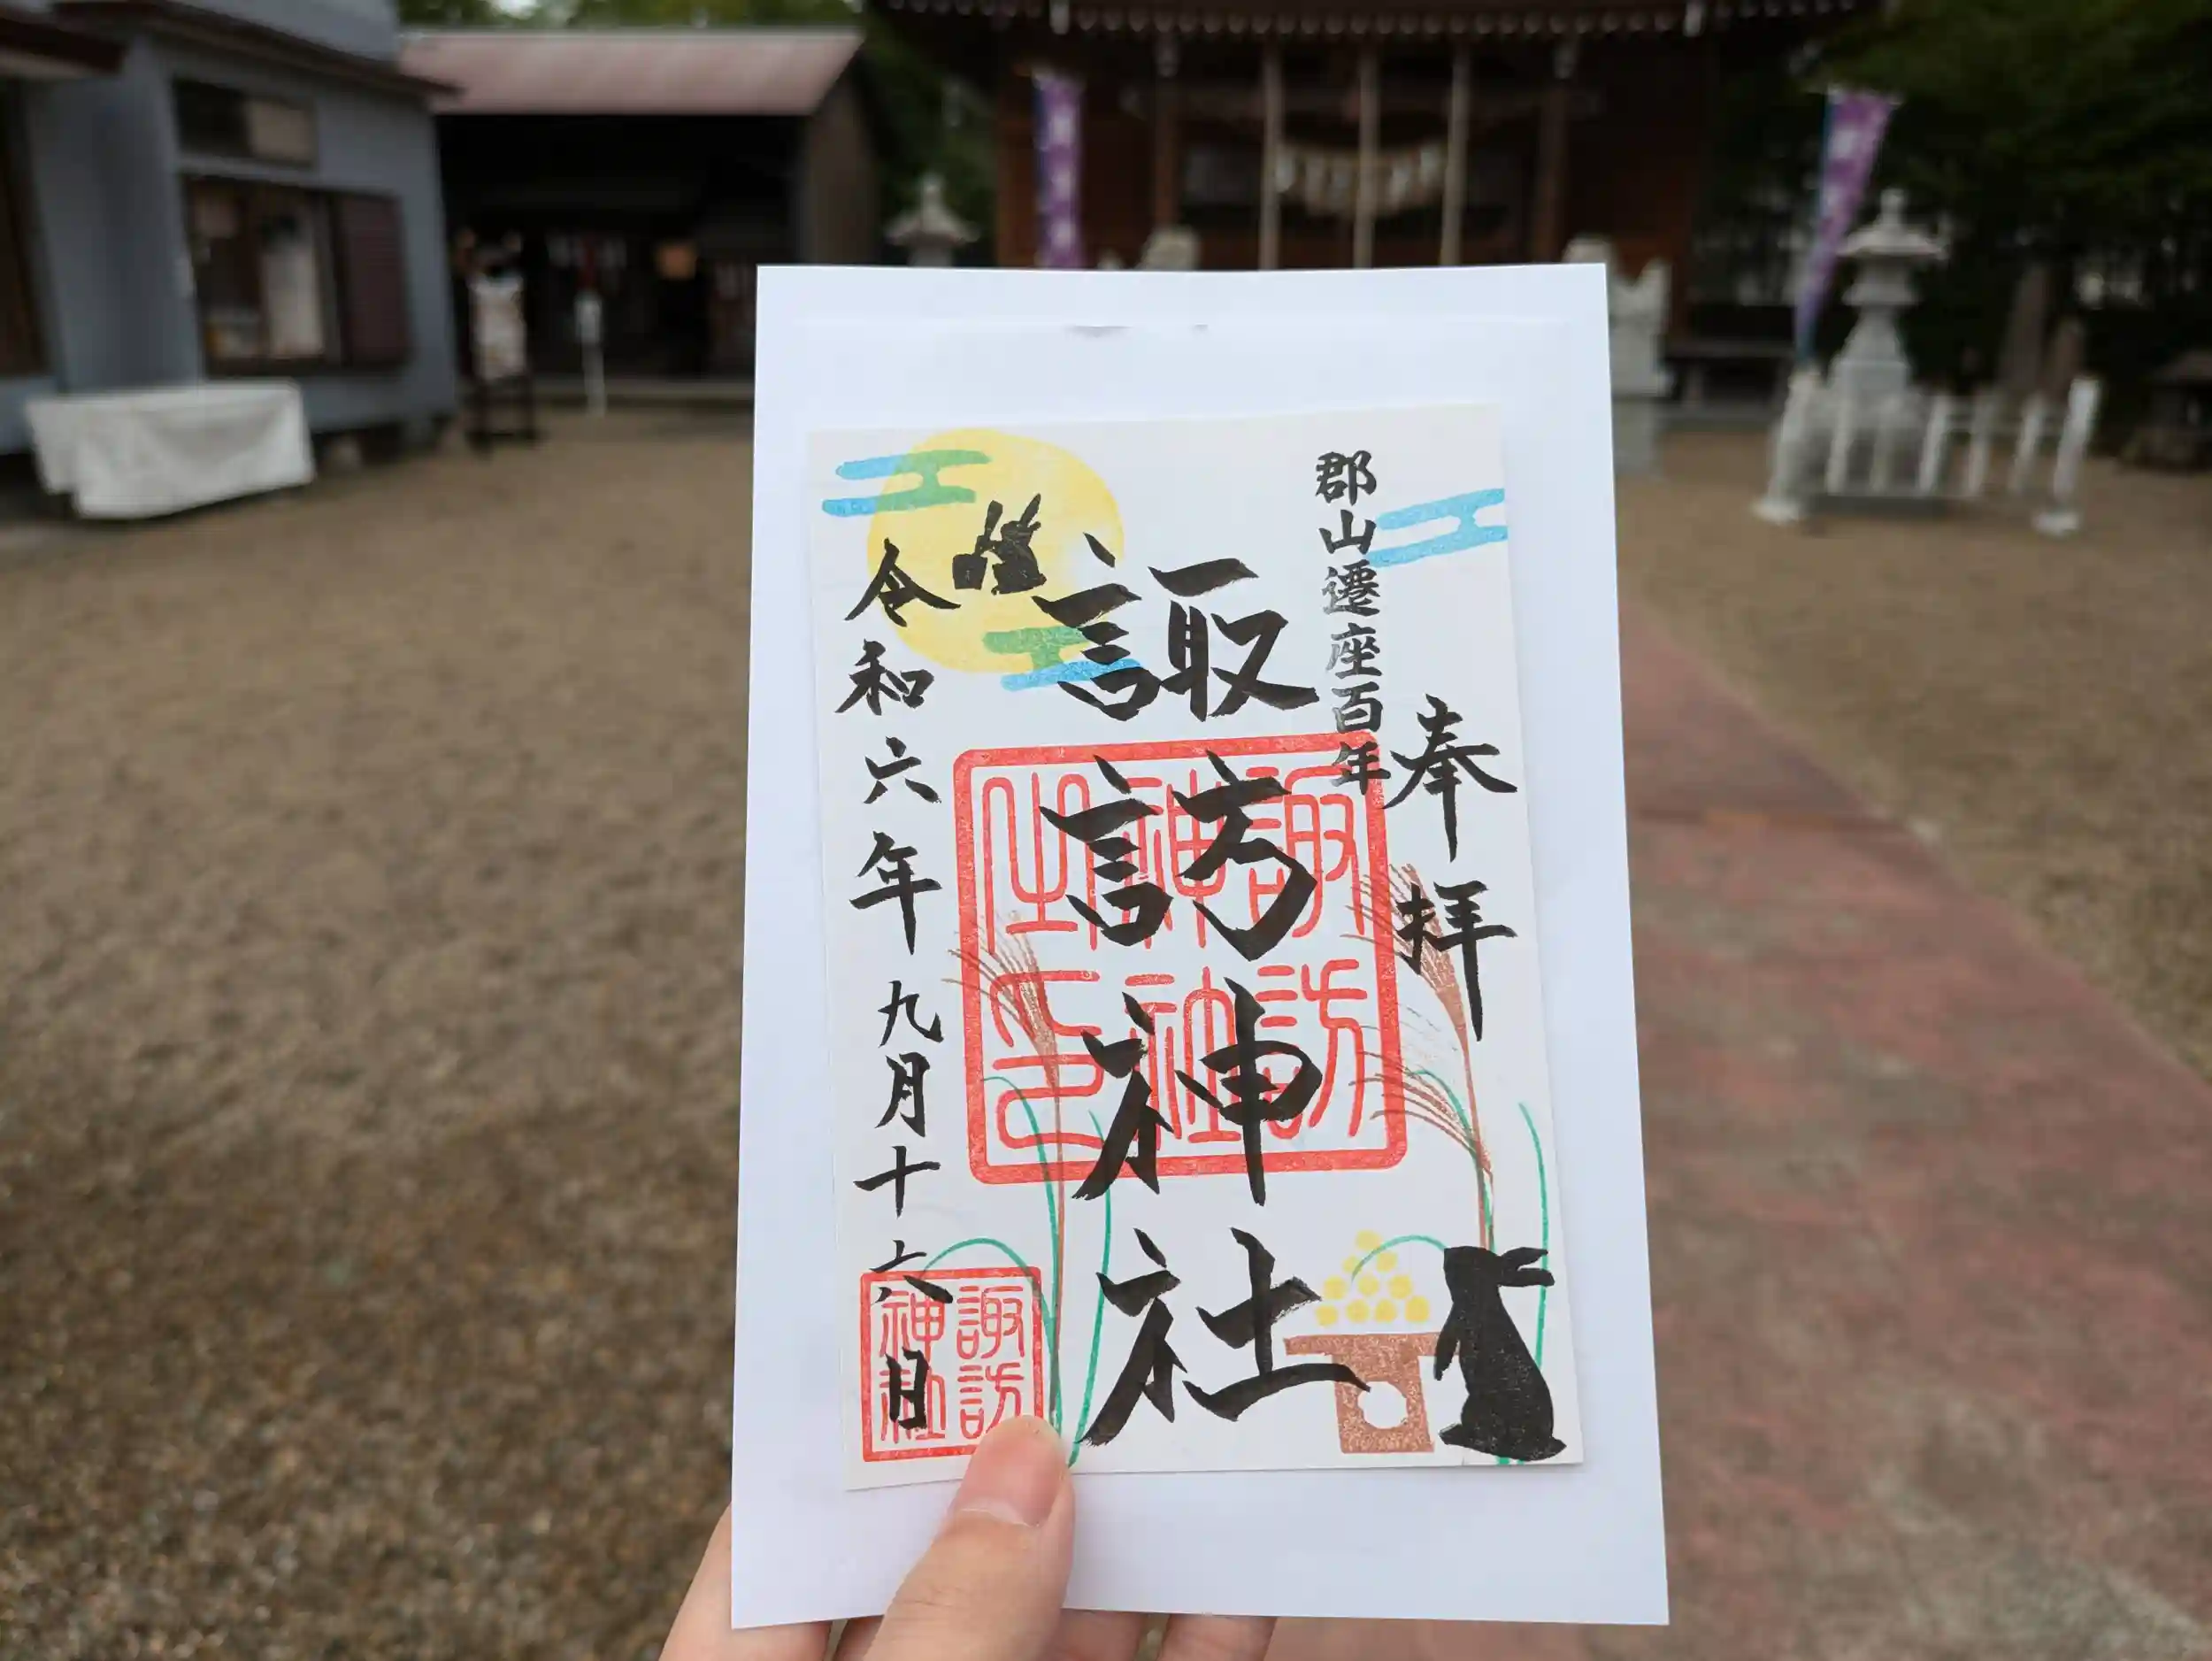 郡山遷座百年
奉拝
諏訪神社
諏訪神社之印
令和六年九月十六日
諏訪神社